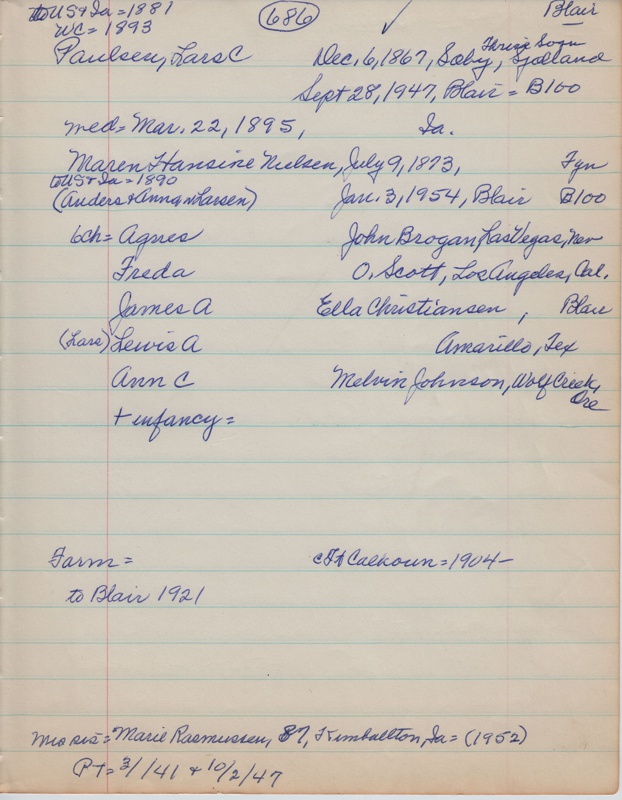 to US & Ia = 1881 686 Blair
WC = 1893
Paulsen, Lars C Dec. 6, 1867, Soby, Sjolland
Sept 28, 1947, Blair = B100
med = Mar. 22, 1895, Ia.
Maren Hansine Nielsen, July 9, 1873, Fyn
to US & Ia = 1890
(Anders & Anna Larsen) Jan. 3, 1954, Blair B100
6ch = Agnes John Brogan, Las Vegas, Nev
Freda O. Scott, Los Angeles, Cal.
James A Ella Christiansen, Blair
(Lars) Lewis A Amarillo, Tex
Ann C Melvin Johnson, Wolf Creek,
Ore
+ infancy =
Farm = Ft Calhoun = 1904 –
to Blair 1921
Mrs sis = Marie Rasmussen, 87, Kimballton, Ia = (1952)
PT = 3/1/41 + 10/2/47